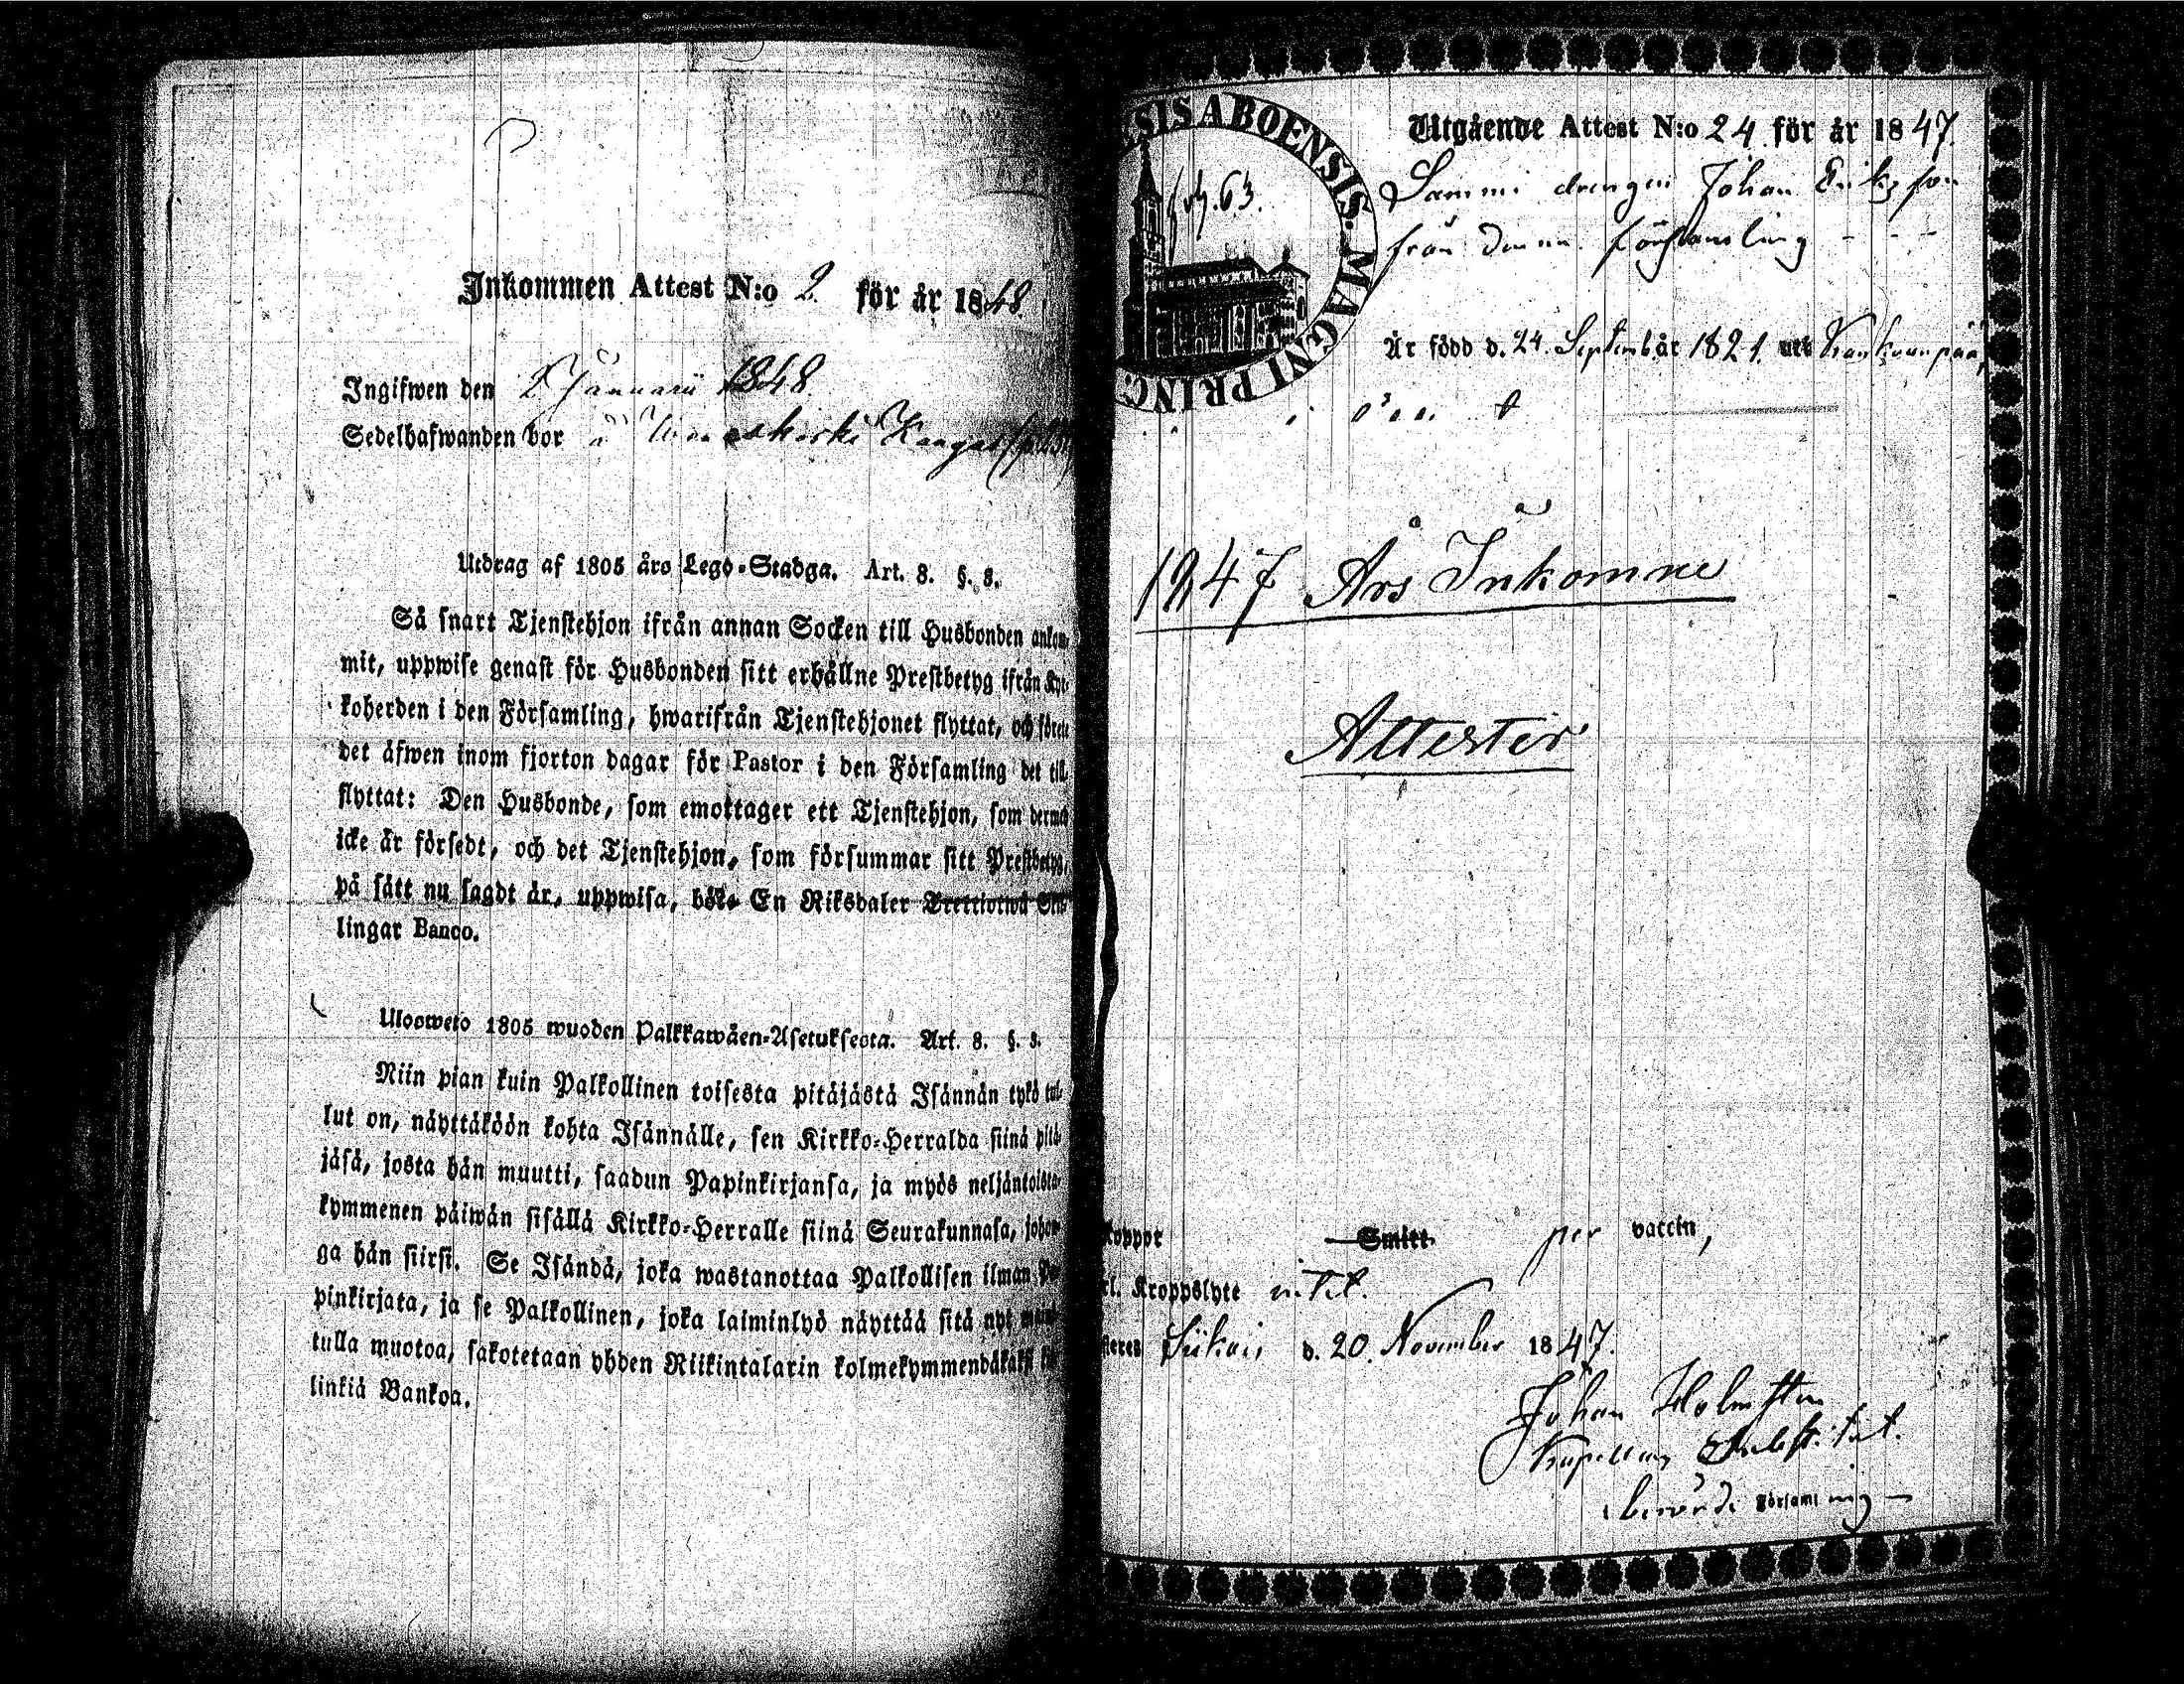 Inkommen Attest N:o 2. för år 1848.
Ingifwen den 2 Januarii 1848.
Sedelhafwanden bor
Utdrag af 1805 års Lego-Stadga. Art. 8. §. 3.
Så snart Tjenstehjon ifrån annan Socken till Husbonden ankom-
mit, uppwise genast för Husbonden sitt erhållne Prestbetyg ifrån Kyr-
koherden i den Församling, hwarifrån Tjenstehjonet flyttat, och förete
det äfwen inom fjorton dagar för Pastor i den Församling det till
flyttat: Den Husbonde, som emottager ett Tjenstehjon, som dermed
icke är försedt, och det Tjenstehjon, som försummar sitt Prestbetyg,
på sätt nu sagdt är, uppwisa, böte En Riksdaler Trettiotwå Skil-
lingar Banco.
Ulosweto 1805 wuoden Palkkawäen-Asetuksesta. Art. 8. §. 3.
Niin pian kuin Palkollinen toisesta pitäjästä Isännän tykö tul-
lut on, näyttäköön kohta Isännälle, sen Kirkko-Herralda siinä pitä-
jäsä, josta hän muutti, saadun Papinkirjansa, ja myös neljäntoista-
kymmenen päiwän sisällä Kirkko-Herralle siinä Seurakunnasa, johon-
ga hän siirsi. Se Isändä, joka wastanottaa Palkollisen ilman Pa-
pinkirjata, ja se Palkollinen, joka laiminlyö näyttää sitä nyt
tulla muotoa, sakotetaan yhden Riikintalarin kolmekymmendäkaksi kil-
linkiä Bankoa.
SIS ABOENSIS. MAGNI PRINC
Utgående Attest N:o 24 för år 1847.
pag. 63.
drengen Johan Eriksson
från denna församling - - -
Är född d. 24. September 1821. uti Kankaanpää,
1947 Års Inkomne
Attester
Koppor Smitt per vaccin,
Kroppslyte intet.
d. 20. November 1847.
Johan Holmsten
Kapellans Substitut.
berörde Församling